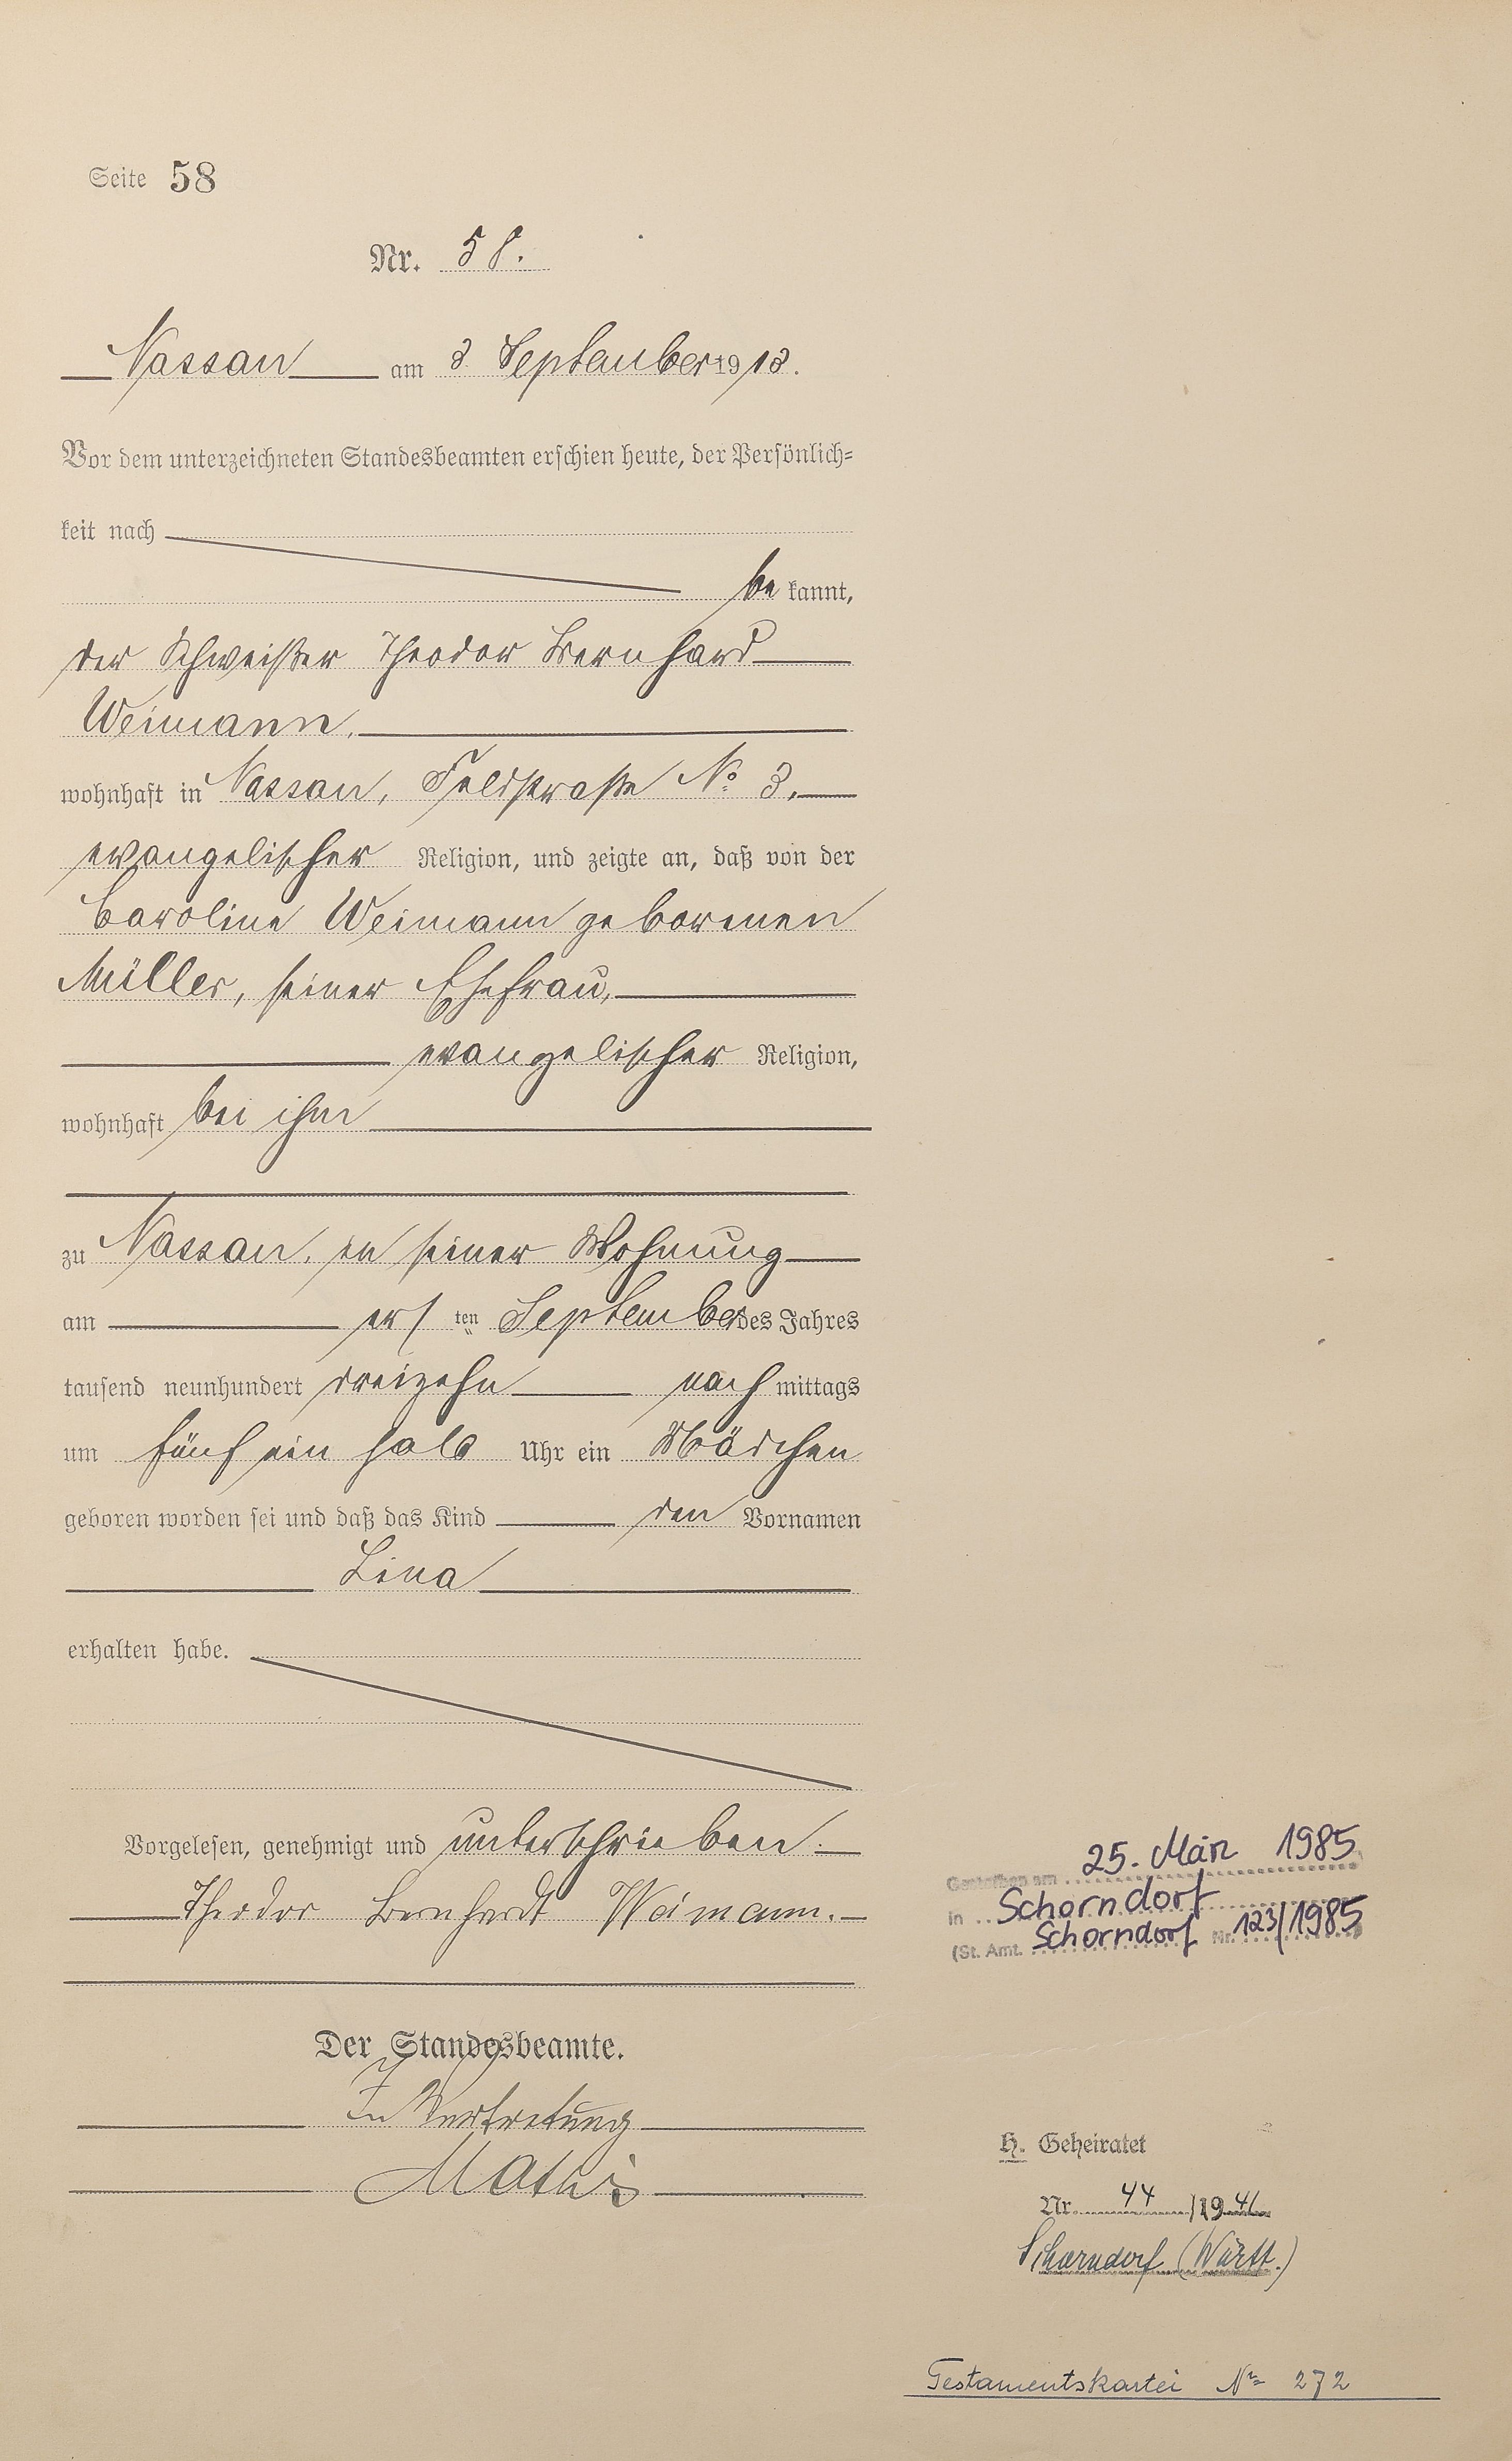 Seite 58
Nr. 58.
Nassau am 3. September 1913.
Vor dem unterzeichneten Standesbeamten erschien heute, der Persönlich=
keit nach
be kannt,
der Schweißer Theodor Bernhard
Weimann,
wohnhaft in Nassau, Feldstraße No. 3,
evangelischer Religion, und zeigte an, daß von der
Caroline Weimann geborenen
Müller, seiner Ehefrau,
evangelischer Religion,
wohnhaft bei ihm
zu Nassau, in seiner Wohnung
am ersten September des Jahres
tausend neunhundert dreizehn nach mittags
um fünf ein halb Uhr ein Mädchen
geboren worden sei und daß das Kind den Vornamen
Lina
erhalten habe.
Vorgelesen, genehmigt und unterschrieben.
Theodor Bernhardt Weimann.
Der Standesbeamte.
In Vertretung
Mathis
Gestorben am 25. März 1985
in Schorndorf
(St. Amt. Schorndorf Nr. 123/1985
H. Geheiratet
Nr. 44 /1941
Schorndorf (Württ.)
Testamentskartei Nr 272